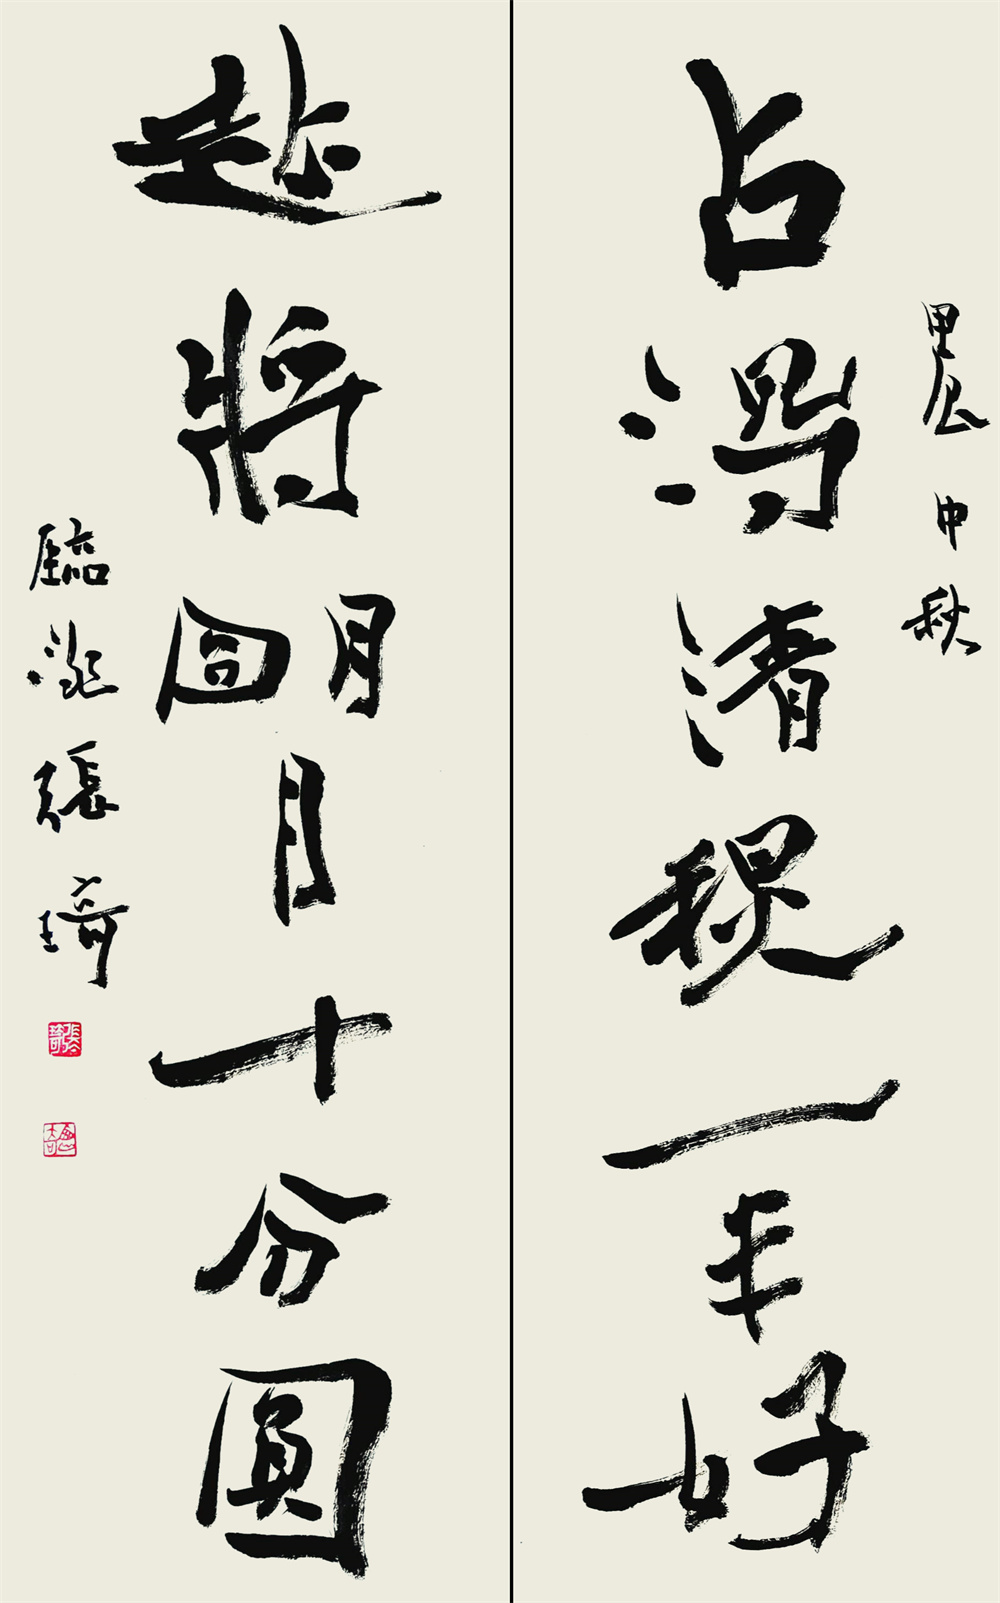 甲辰中秋
占得清秋一半好
赴將明月十分圓
臨洮張琦